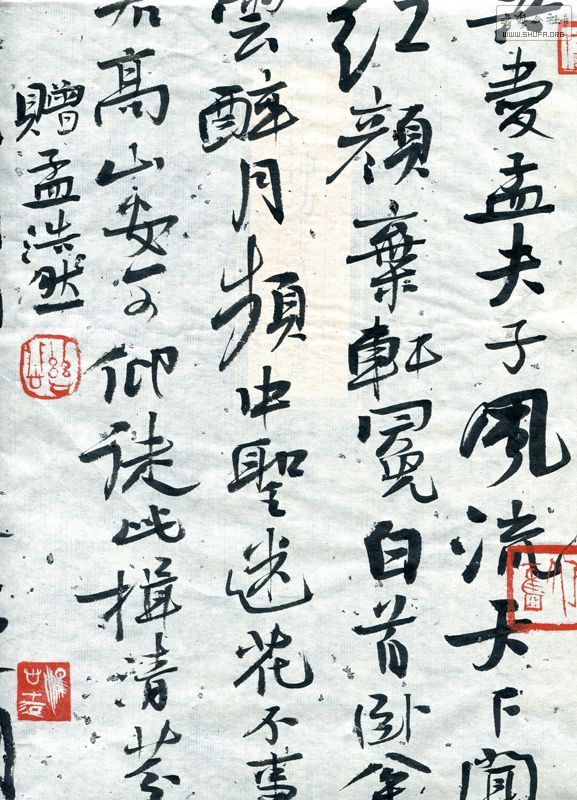 吾愛孟夫子風流天下聞
红顔棄軒冕白首卧
雲醉月頻中聖迷花不事
君高山安可仰徒此揖清芬
贈孟浩然
WWW.SHUFA.ORG